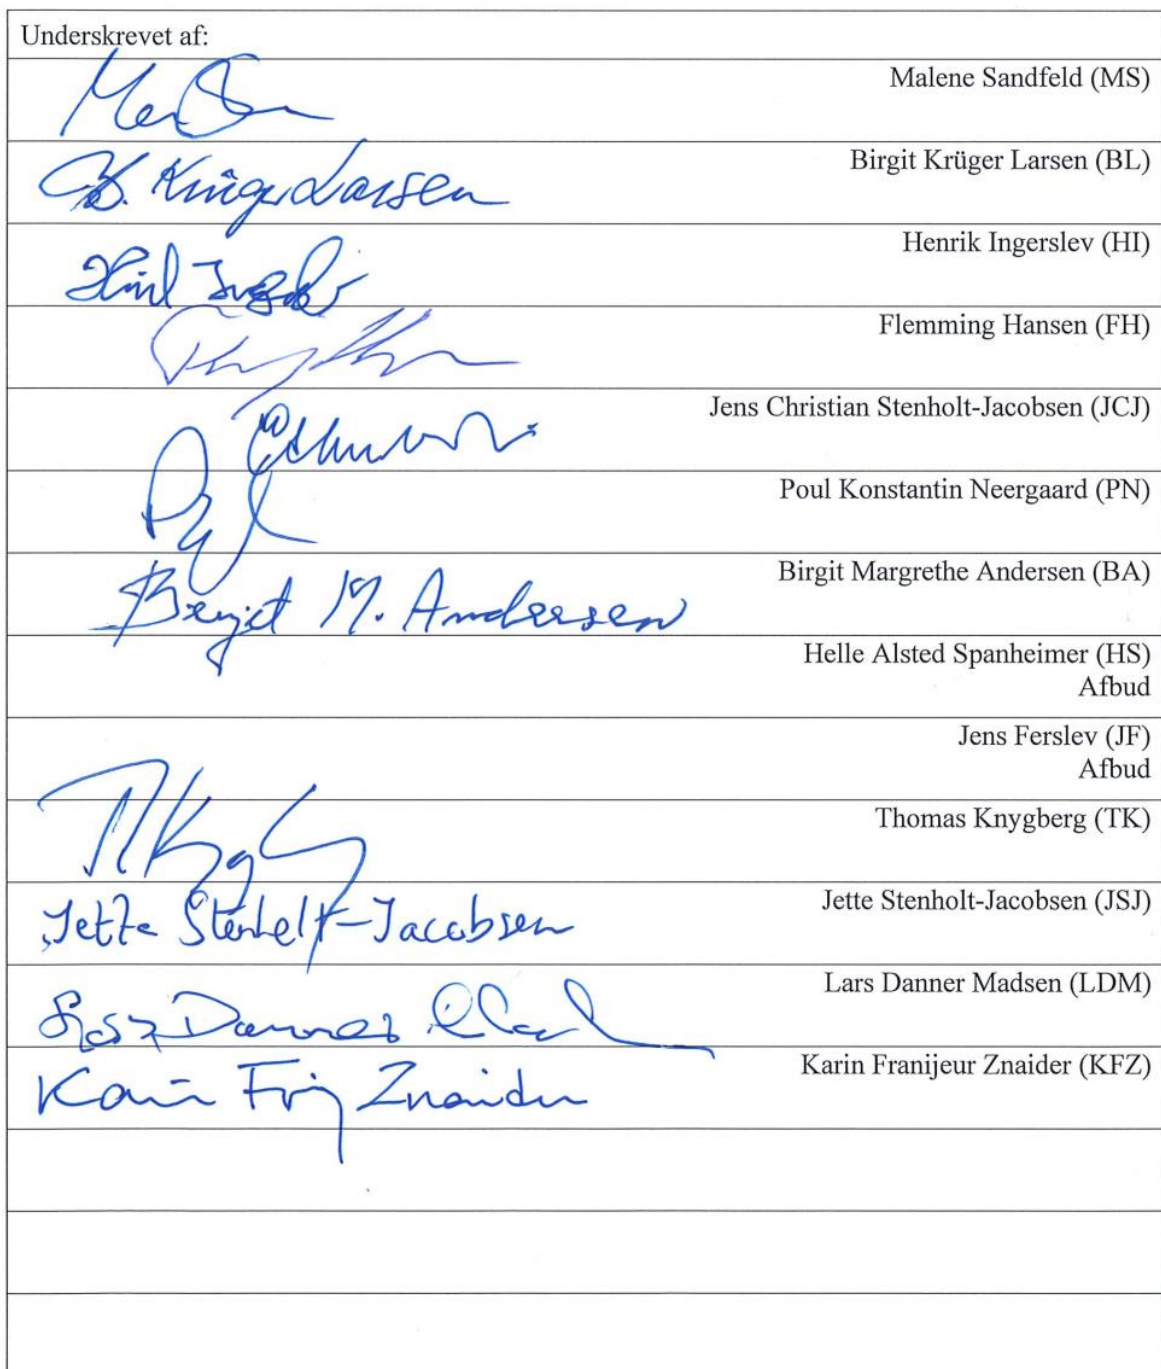 Underskrevet af:
Malene Sandfeld (MS)
B. Krüger Larsen
Birgit Krüger Larsen (BL)
Henrik Ingerslev (HI)
Flemming Hansen (FH)
Jens Christian Stenholt-Jacobsen (JCJ)
Poul Konstantin Neergaard (PN)
Birgit M. Andersen
Birgit Margrethe Andersen (BA)
Helle Alsted Spanheimer (HS)
Afbud
Jens Ferslev (JF)
Afbud
Thomas Knygberg (TK)
Jette Stenholt-Jacobsen
Jette Stenholt-Jacobsen (JSJ)
Lars Danner
Lars Danner Madsen (LDM)
Karin Znaider
Karin Franijeur Znaider (KFZ)